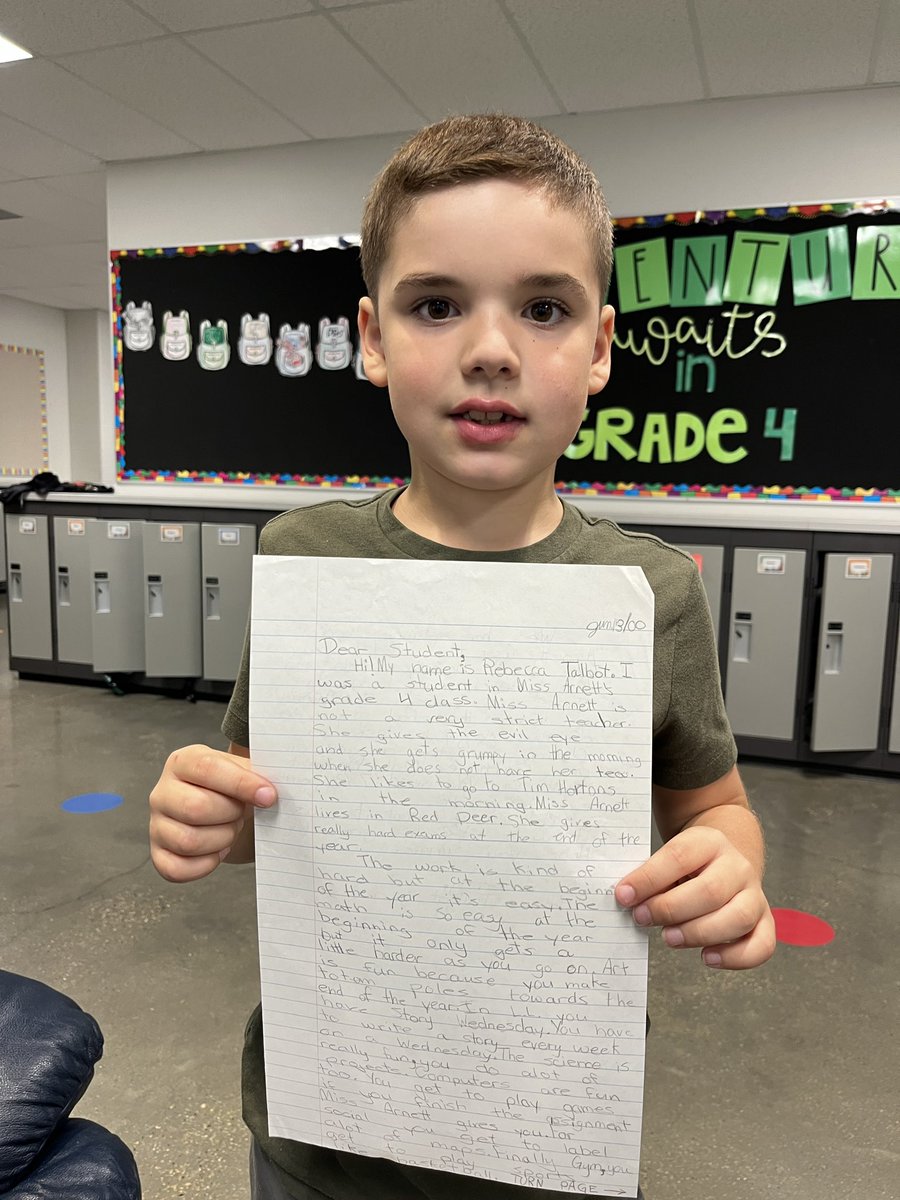 ENTUR
awaits
in
GRADE 4
jun 13/00
Dear Student,
Hi! My name is Rebecca Talbot. I
was a student in Miss Arnett's
grade 4 class. Miss Arnett is
not a very strict teacher.
She gives the evil eye
and she gets grumpy in the morning
when she does not have her tea.
She likes to go to Tim Hortons
in the morning. Miss Arnett
lives in Red Deer. She gives
really hard exams at the end of the
year.
The work is kind of
hard but at the beginn
of the year it's easy. The
math is so easy at the
beginning of the year
but it only gets a
little harder as you go on. Art
is fun because you make
totam poles towards the
end of the year. In L.L. you
have Story Wednesday. You have
to write a story every week
on a Wednesday. The science is
really fun, you do alot of
projects. Computers are fun
too. You get to play games
if you finish the assignment
Miss Arnett gives you. For
social you get to label
alot of maps. Finally Gym, you
get to play sport
like basketball. TURN PAGE →